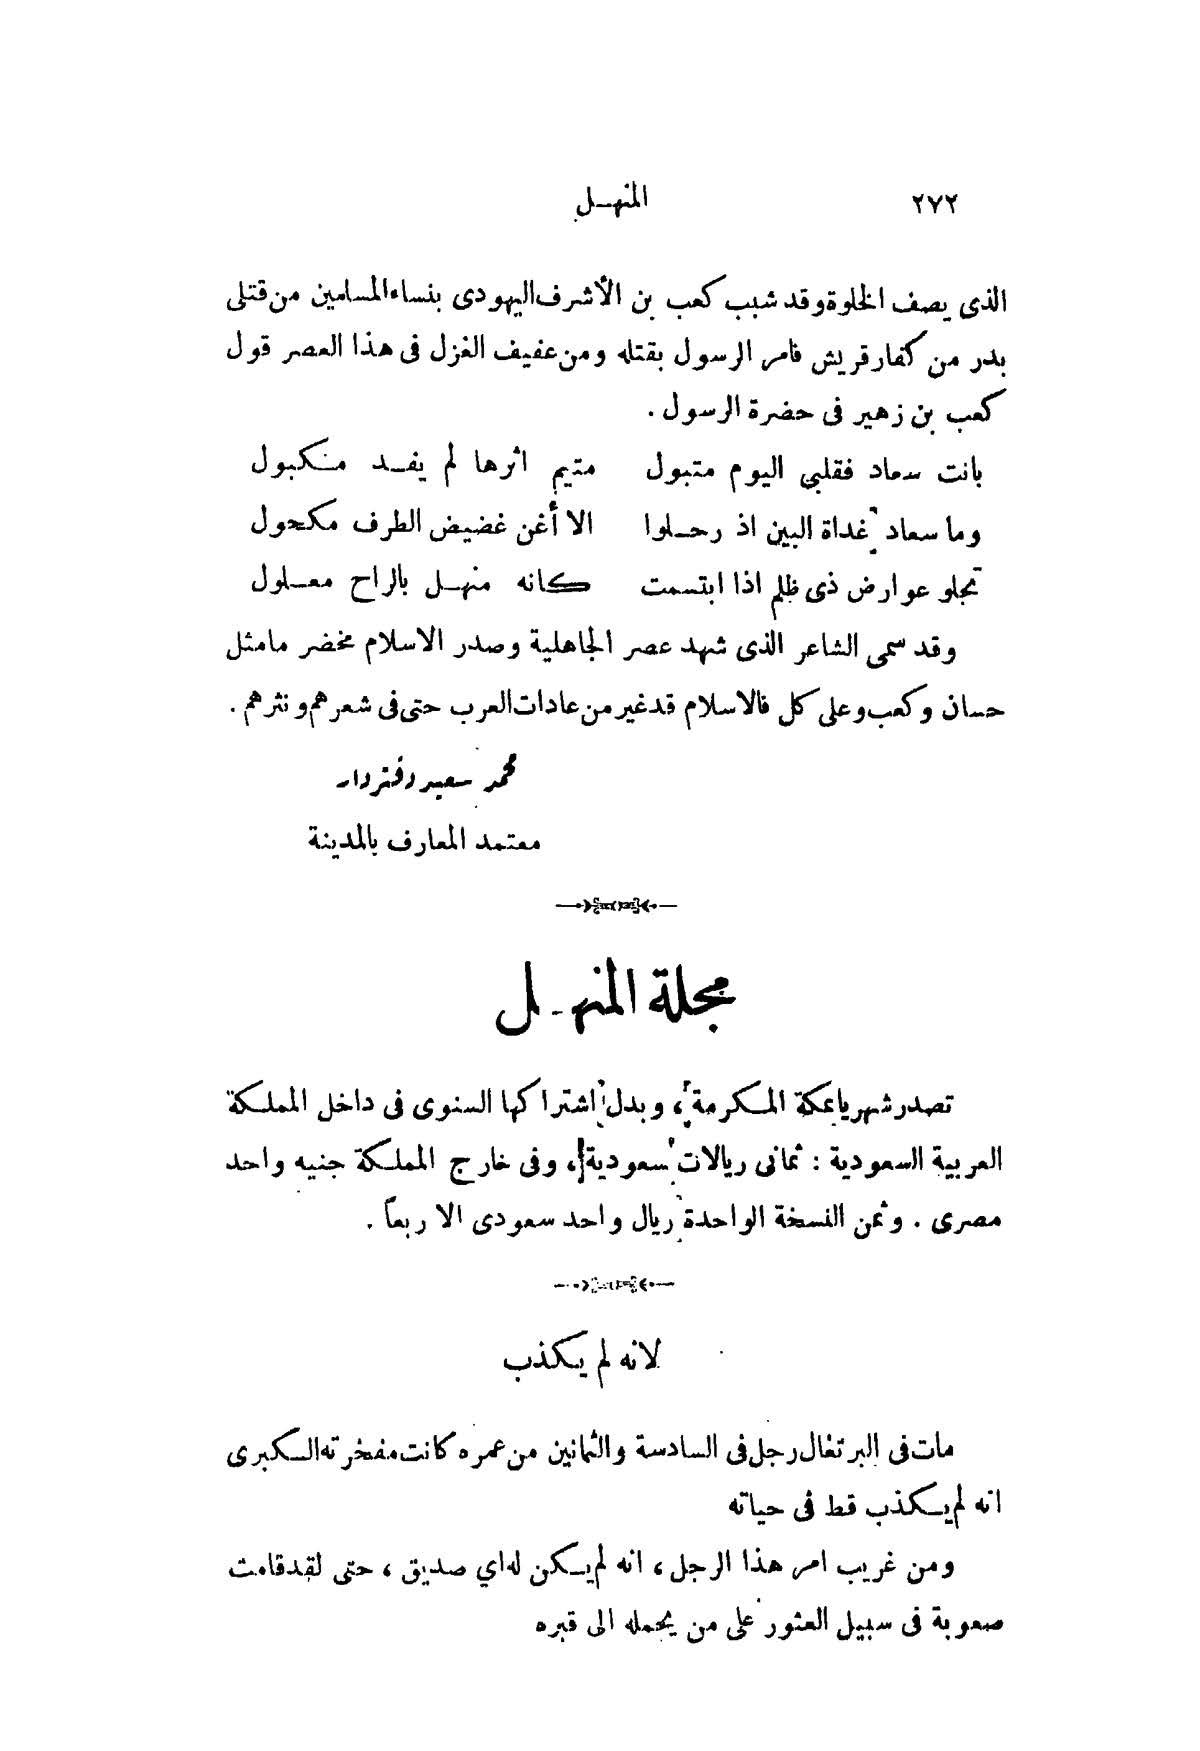 ٢٧٢ المنهل
الذى يصف الخلوة وقد شبب كعب بن الأشرف اليهودى بنساء المسلمين من قتلى
بدر من كفار قريش فامر الرسول بقتله ومن عفيف الغزل فى هذا العصر قول
كعب بن زهير فى حضرة الرسول .
بانت سعاد فقلبي اليوم متبول متيم اثرها لم يفد مكبول
وما سعاد غداة البين اذ رحلوا الا أغن غضيض الطرف مكحول
تجلو عوارض ذى ظلم اذا ابتسمت كانه منهل بالراح معلول
وقد سمى الشاعر الذى شهد عصر الجاهلية وصدر الاسلام مخضرما مثل
حسان وكعب وعلى كل فالاسلام قد غير من عادات العرب حتى فى شعرهم ونثرهم .
محمد سعيد دفتردار
معتمد المعارف بالمدينة
مجلة المنهل
تصدر شهريا بمكة المكرمة ، وبدل اشتراكها السنوى فى داخل المملكة
العربية السعودية : ثمانى ريالات سعودية ، وفى خارج المملكة جنيه واحد
مصرى . وثمن النسخة الواحدة ريال واحد سعودى الا ربعاً .
لانه لم يكذب
مات فى البرتغال رجل فى السادسة والثمانين من عمره كانت مفخرته الكبرى
انه لم يكذب قط فى حياته
ومن غريب امر هذا الرجل ، انه لم يكن له اي صديق ، حتى لقد قامت
صعوبة فى سبيل العثور على من يحمله الى قبره